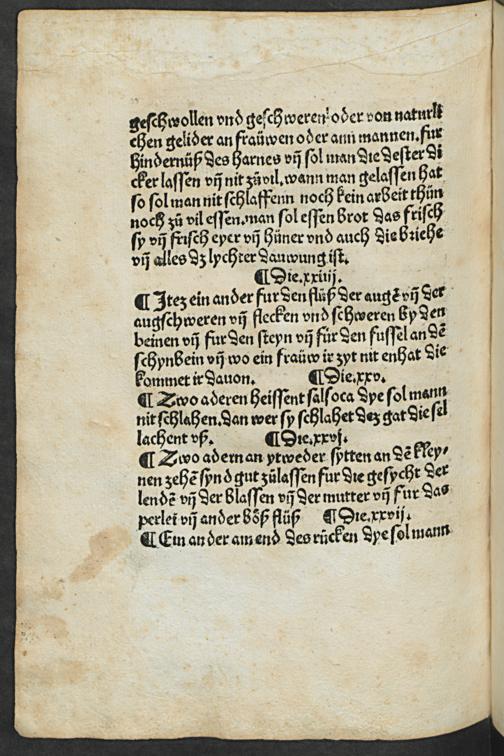 geschwollen vnd geschweren oder von naturli
chen gelider an frauͤwen oder ann mannen. fur
hindernuͤß des harnes vñ sol man die dester di
cker lassen vñ nit zuͤvil. wann man gelassen hat
so sol man nit schlaffenn noch kein arbeit thuͤn
noch zuͤ vil essen. man sol essen brot das frisch
sy vñ frisch eyer vñ huͤner vnd auch die bruͤehe
vñ alles dz lychter dauwung ist.
¶ Die. xxiiij.
¶ Itez ein ander fur den fluͤß der augē vñ der
augschweren vñ flecken vnd schweren by den
beinen vñ fur den steyn vñ fuͤr den fussel an dē
schynbein vñ wo ein frauͤw ir zyt nit enhat die
kommet ir dauon. ¶ Die. xxv.
¶ Zwo aderen heissent salsoca dye sol mann
nit schlahen. dan wer sy schlahet dez gat die sel
lachent vß. ¶ Die. xxvj.
¶ Zwo adern an ytweder sytten an dē kley⸗
nen zehē synd gut zuͤlassen fur die gesycht der
lendē vñ der blassen vñ der mutter vñ fur das
perlei vñ ander boͤß fluͤß ¶ Die. xxvij.
¶ Ein ander am end des ruͤcken dye sol mann